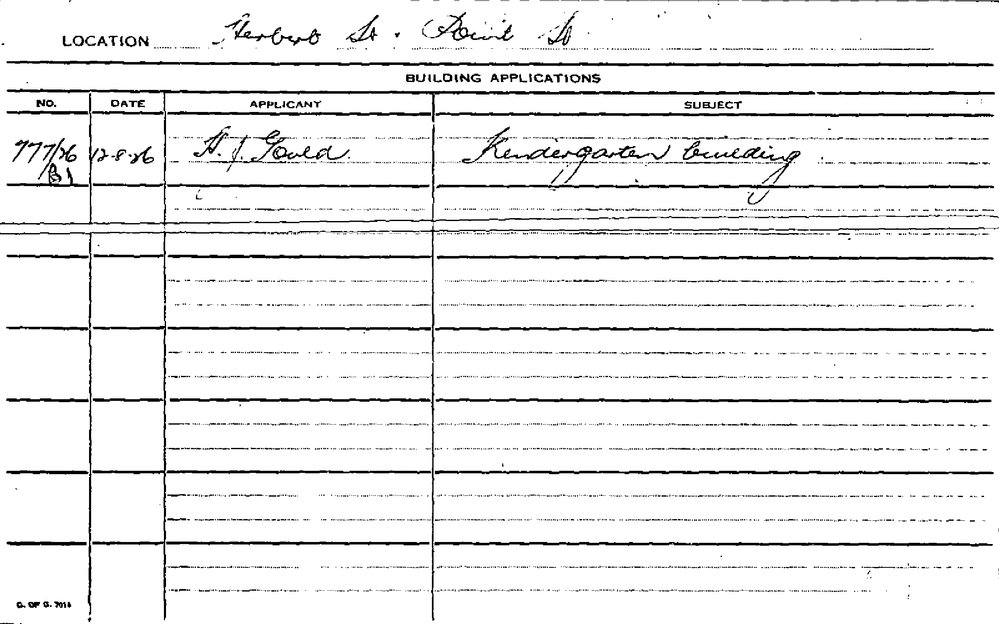 LOCATION Herbert St. Point St
BUILDING APPLICATIONS
NO. DATE APPLICANT SUBJECT
777/26 12-8-26 H. J. Gould. Kendergarten building
/B1